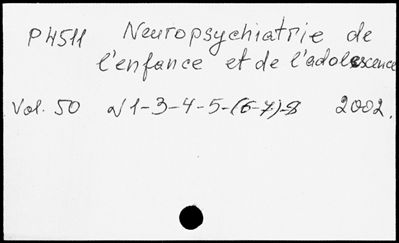 P4511 Neuropsychiatrie de
l'enfance et de l'adolescence
Vol. 50 N 1-3-4-5-(6-7)-8 2002.